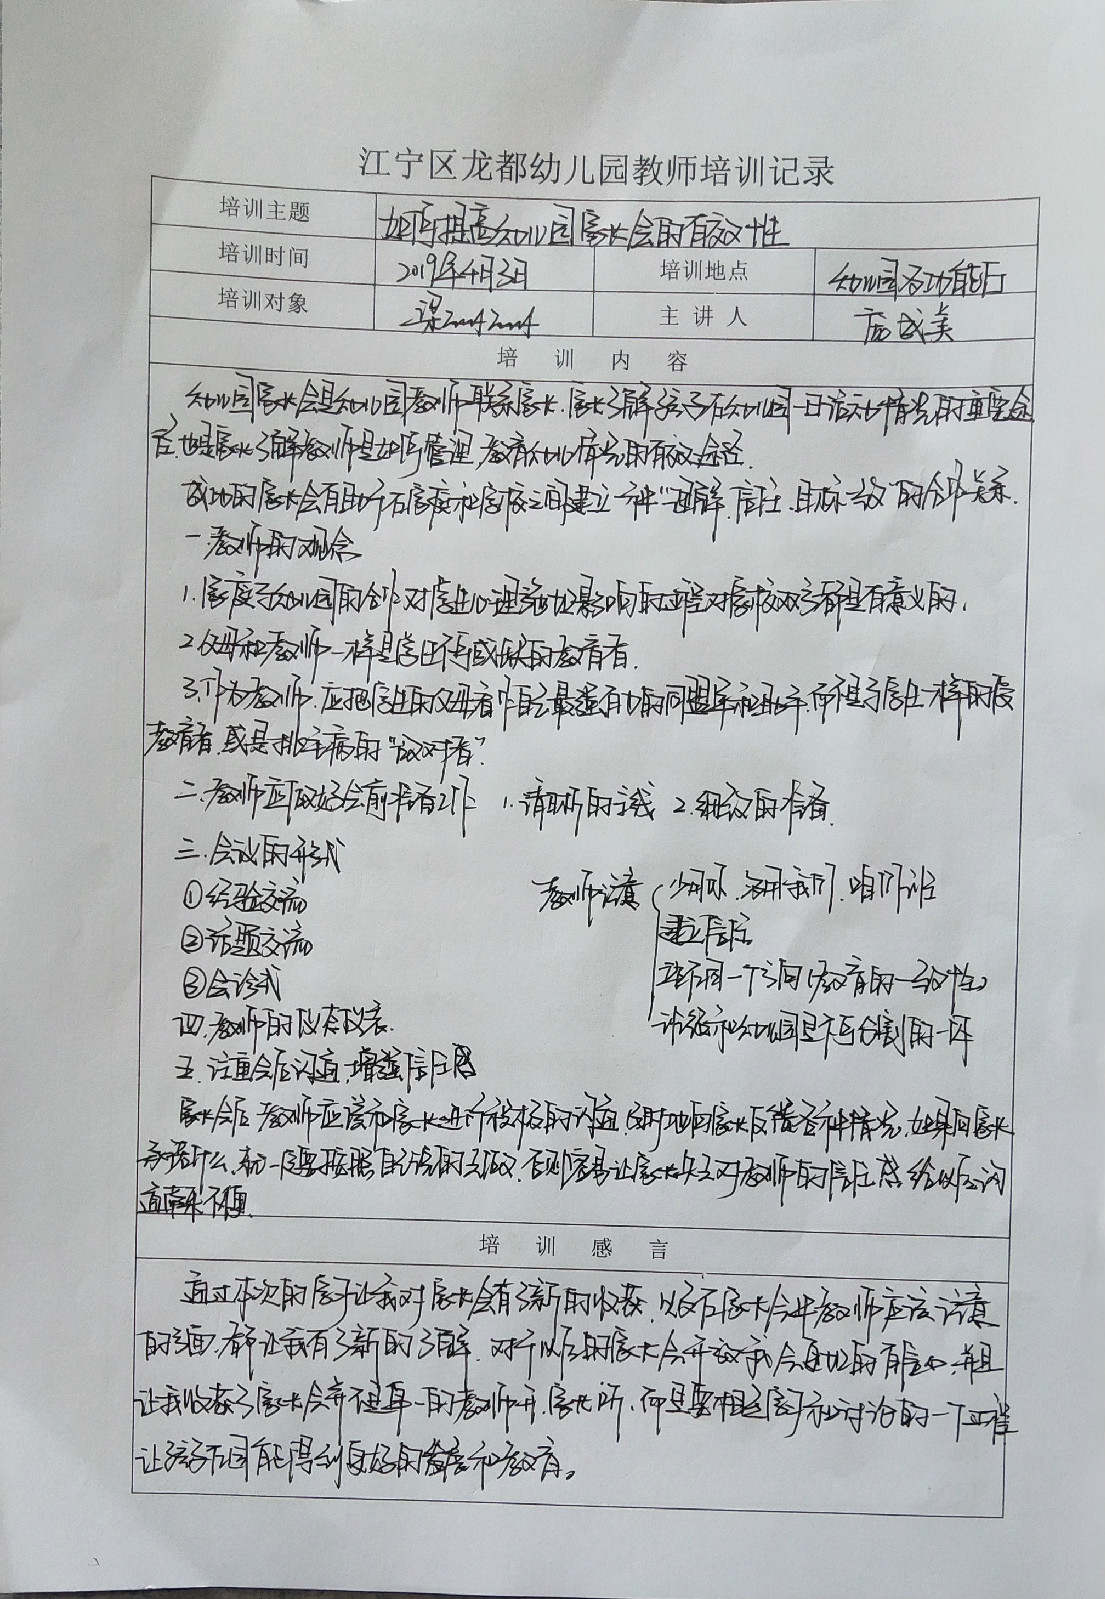 江宁区龙都幼儿园教师培训记录
培训主题 如何提高幼儿园家长会的有效性
培训时间 2019年4月3日 培训地点 幼儿园多功能厅
培训对象 主讲人
培训内容
幼儿园家长会是幼儿园教师联系家长、家长了解孩子在幼儿园一日活动情况的重要途
径,也是家长了解教师是如何管理、教育幼儿情况的有效途径.
成功的家长会有助于在家庭和学校之间建立一种"理解、信任、目标一致"的合作关系.
一.教师的观念
1.家庭与幼儿园的合作对学生心理 影响的 对家校双方都是有意义的.
2.父母和教师一样是学生不可或缺的教育者.
3.作为教师,应把学生的父母看作自己最强有力的同盟军和助手,而不是与学生一样的受
教育者,或是挑毛病的"敌对者".
二.教师应做好会前准备工作 1.清晰的主线 2.细致的准备.
三.会议的形式
①经验交流 教师注意 少用你,多用我们,咱们班
②话题交流 建立信任
③会诊式 (教育的一致性)
四.教师的仪态仪表. 和幼儿园是不可分割的一环
五.注重会后沟通,增强信任感
家长会后,教师应该和家长进行积极的沟通,及时地向家长反馈各种情况,如果向家长
承诺什么,就一定要按照自己说的去做,否则容易让家长失去对教师的信任感,给以后沟
通带来不便.
培训感言
通过本次的学习让我对家长会有了新的收获,以及在家长会中教师应该注意
的方面,都让我有了新的了解,对于以后的家长会开放我会更加的有信心,并且
让我收获了家长会并不是单一的教师讲,家长听,而是要相互学习和讨论的一个过程
让孩子在园能得到更好的发展和教育。